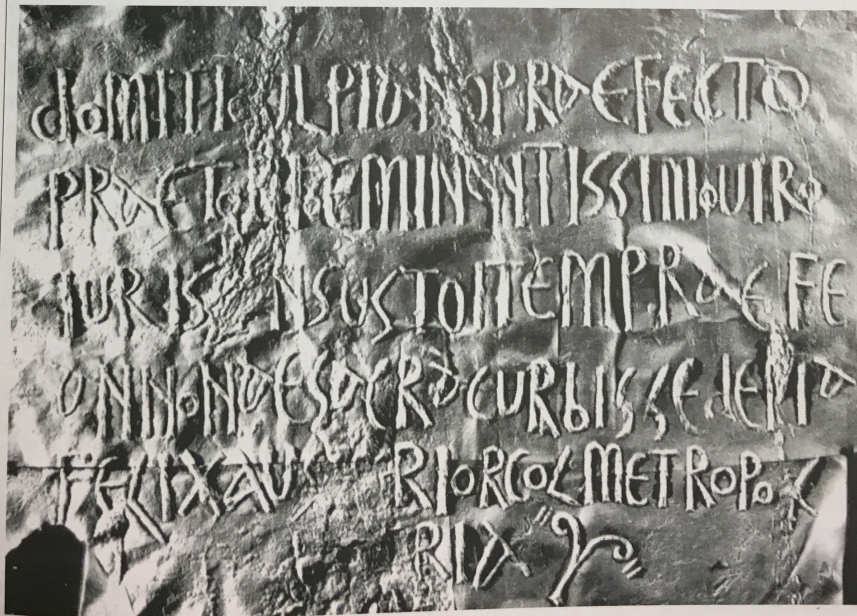 DOMITIO ULPIANOPRAEFECTO
PRAETORIOEMINENTISSIMOUIRO
IURIS NSUSTOITEMPRAEFE
ONNONAESACRAEURBISSEUERIA
FELIXAU RIORCOLMETROPOL
RIA